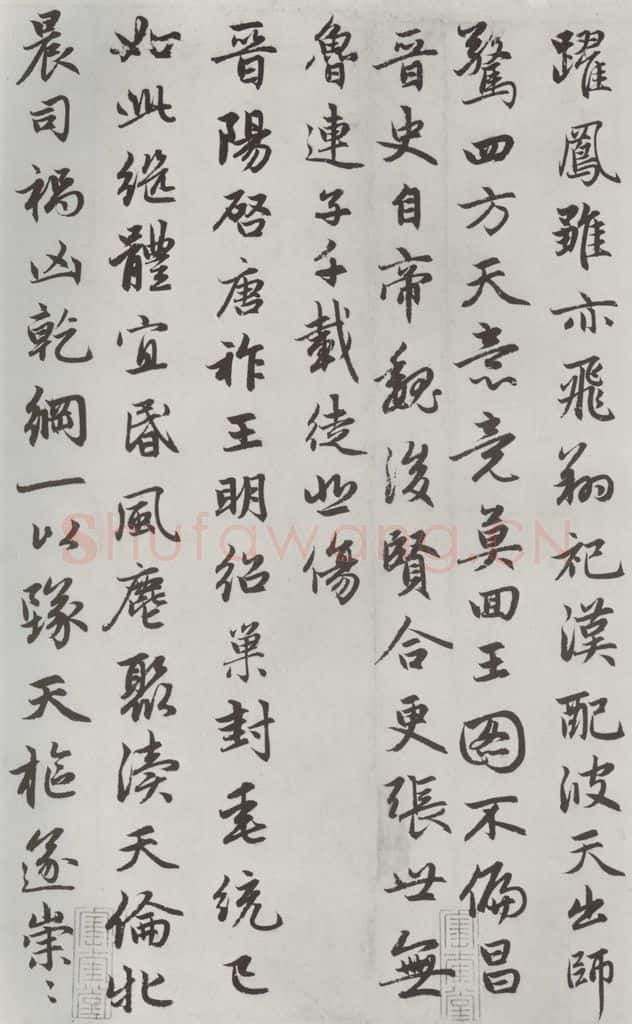 躍鳳雛亦飛翔祀漢配彼天出師
驚四方天意竟莫回王圖不偏昌
晉史自帝魏後賢合更張世無
魯連子千載徒悲傷
晉陽啓唐祚王明紹巢封垂統已
如此繼體宜昏風麀聚瀆天倫牝
晨司禍凶乾綱一以墜天樞遂崇〻
Shufawang.CN